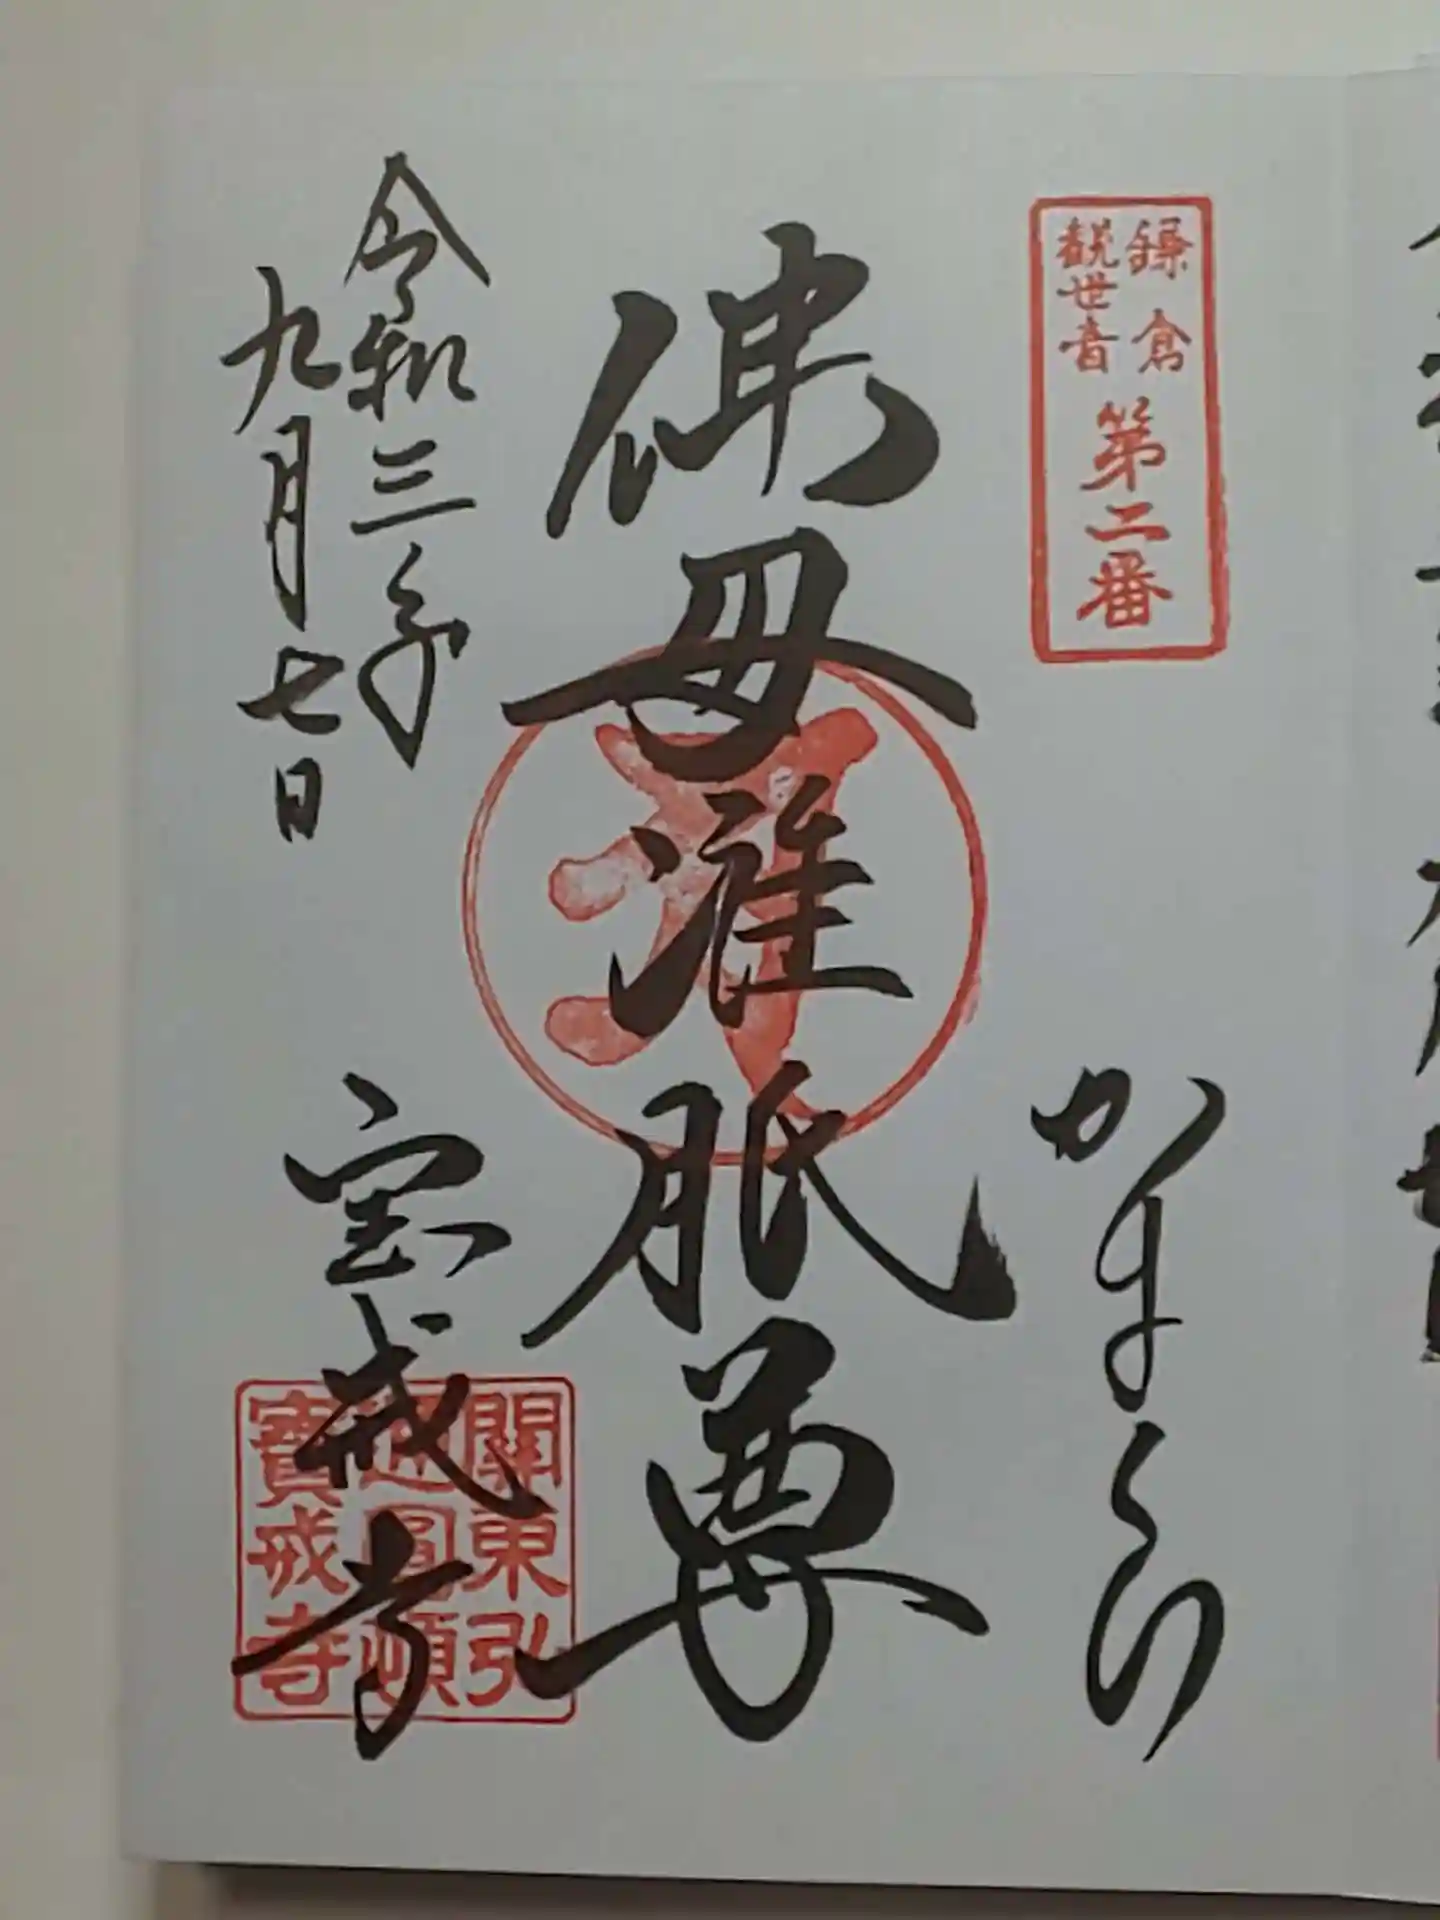 鎌倉
観世音
第二番
かまくら
佛母准胝尊
令和三年
九月七日
宝戒寺
關東弘
通圓頓
寶戒寺